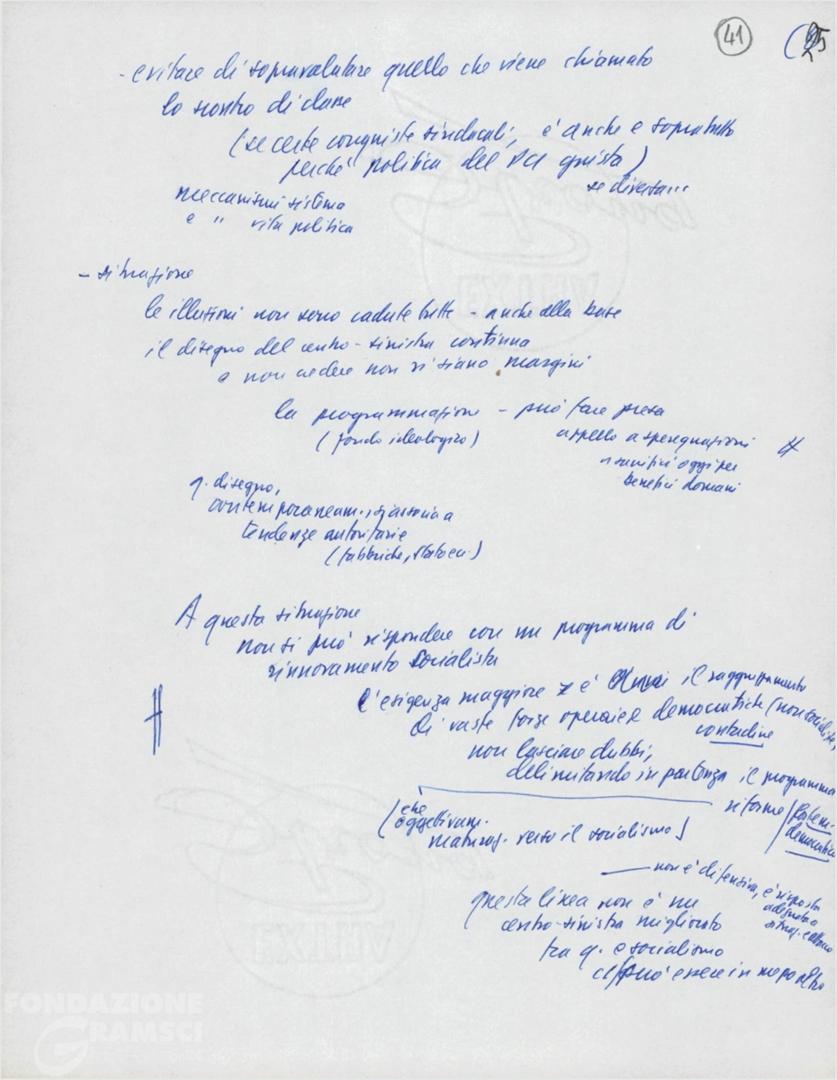 41
25
- evitare di sopravalutare quello che viene chiamato
lo scontro di classe
(se certe conquiste sindacali, è anche e sopratutto
perché politica del PCI giusta)
se diversa...
meccanismi sistema
e " vita politica
- situazione
le illusioni non sono cadute tutte - anche alla base
il disegno del centro-sinistra continua
a non cedere non vi siano margini
la programmazione - può fare presa
(fondo ideologico)
appello a sperequazioni #
sacrifici oggi per
benefici domani
q. disegno,
contemporaneam. si associa a
tendenze autoritarie
(fabbriche, stato ecc.)
A questa situazione
non si può rispondere con un programma di
rinnovamento socialista
L'esigenza maggiore è il raggruppamento
di vaste forze operaie e democratiche (non socialiste,
contadine
non lasciare dubbi,
delimitando in partenza il programma
riforme
democratico
(che
oggettivam.
maturaz. verso il socialismo)
non è difensiva, è risposta
adeguata a
situaz. odierna
questa linea non è un
centro-sinistra migliorato
tra q. e socialismo
ci può essere in mezzo altro
FONDAZIONE
GRAMSCI